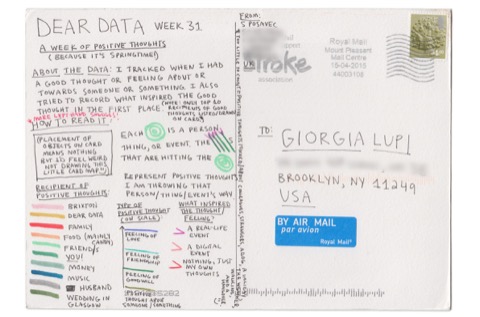 DEAR DATA WEEK 31
A WEEK OF POSITIVE THOUGHTS
(BECAUSE IT'S SPRINGTIME!)
ABOUT THE DATA: I TRACKED WHEN I HAD
A GOOD THOUGHT OR FEELING ABOUT OR
TOWARDS SOMEONE OR SOMETHING. I ALSO
TRIED TO RECORD WHAT INSPIRED THE GOOD
THOUGHT IN THE FIRST PLACE.
HOW TO READ IT:
(PLACEMENT OF
OBJECTS ON CARD
MEANS NOTHING
BUT IT FEELS WEIRD
NOT DRAWING THIS
LITTLE CARD MAP)
EACH IS A PERSON,
THING, OR EVENT. THE
THAT ARE HITTING THE
REPRESENT POSITIVE THOUGHTS
I AM THROWING THAT
PERSON/THING/EVENT'S WAY
RECIPIENT OF
POSITIVE THOUGHTS:
BRIXTON
DEAR DATA
FAMILY
FOOD (MAINLY
FRIENDS
YOU!
MONEY
MUSIC
HUSBAND
WEDDING IN
GLASGOW
TYPE OF
POSITIVE THOUGHT
(ON SCALE)
FEELING OF
LOVE
FEELING OF
FRIENDSHIP
FEELING OF
GOODWILL
POSITIVE THOUGHT ABOUT
SOMEONE/SOMETHING
WHAT INSPIRED
THE THOUGHT/
FEELING?
A REAL-LIFE
EVENT
A DIGITAL
EVENT
NOTHING, JUST
MY OWN
THOUGHTS
FROM:
S POSAVEC
UK
Stroke
association
Royal Mail
Mount Pleasant
Mail Centre
19-04-2015
44003108
TO:
GIORGIA LUPI
BROOKLYN, NY 11249
USA
BY AIR MAIL
par avion
Royal Mail